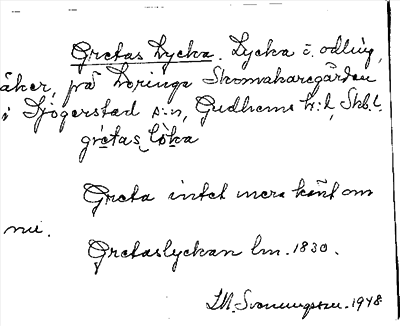 Gretas Lycka. Lycka o. odling,
åker, på Loringa Skomakaregården
i Sjögerstad s:n, Gudhems h:d, Skb.l.
grétas lö̀ka
Greta intet mera känt om
nu.
Gretaslyckan lm. 1830.
I.M. Svenungsson. 1948